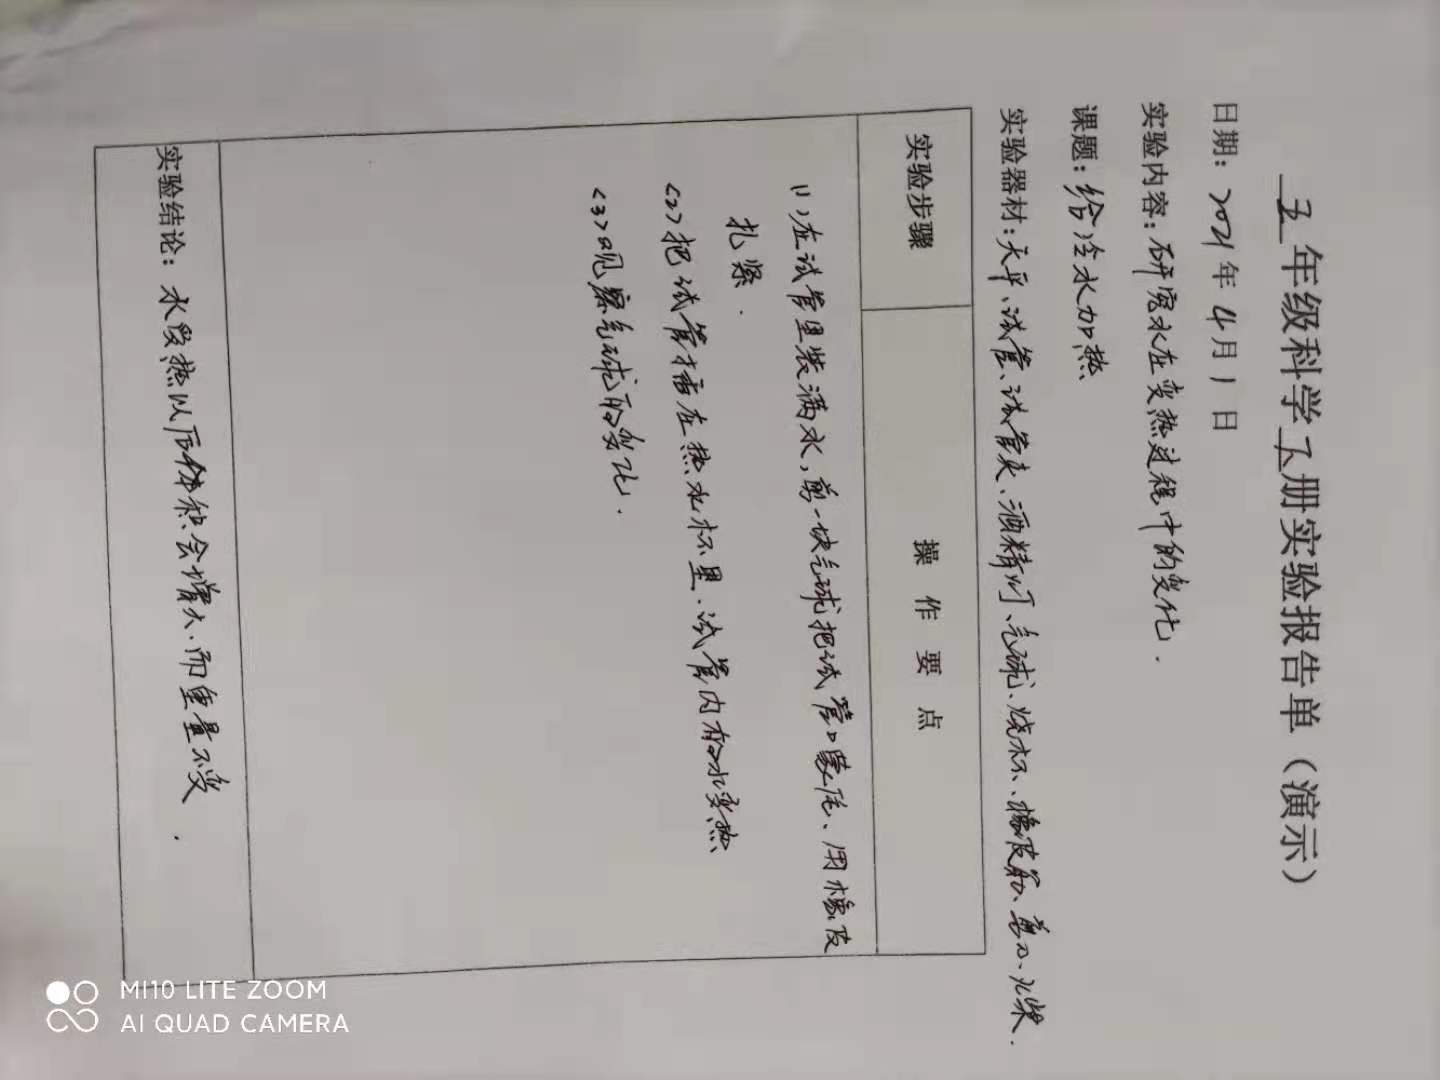 五年级科学下册实验报告单（演示）
日期：2021年4月1日
实验内容：研究水在变热过程中的变化.
课题：给冷水加热
实验器材：天平、试管、试管夹、酒精灯、气球、烧杯、橡皮筋、剪刀、火柴.
实验步骤 操作要点
(1)在试管里装满水,剪一块气球把试管口蒙住、用橡皮
扎紧.
<2>把试管插在热水杯里、试管内的水变热
<3>观察气球的变化.
实验结论：水受热以后体积会增大、而重量不变.
MI10 LITE ZOOM
AI QUAD CAMERA